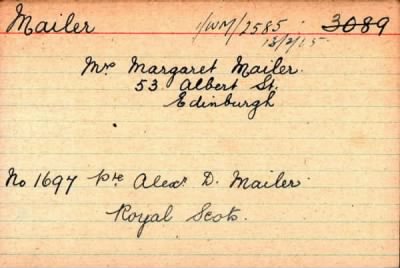 Mailer 1/WM/2585 3089
13/2/15.
Mrs Margaret Mailer.
53 Albert St.
Edinburgh
No 1697 Pte Alexr D. Mailer
Royal Scots.